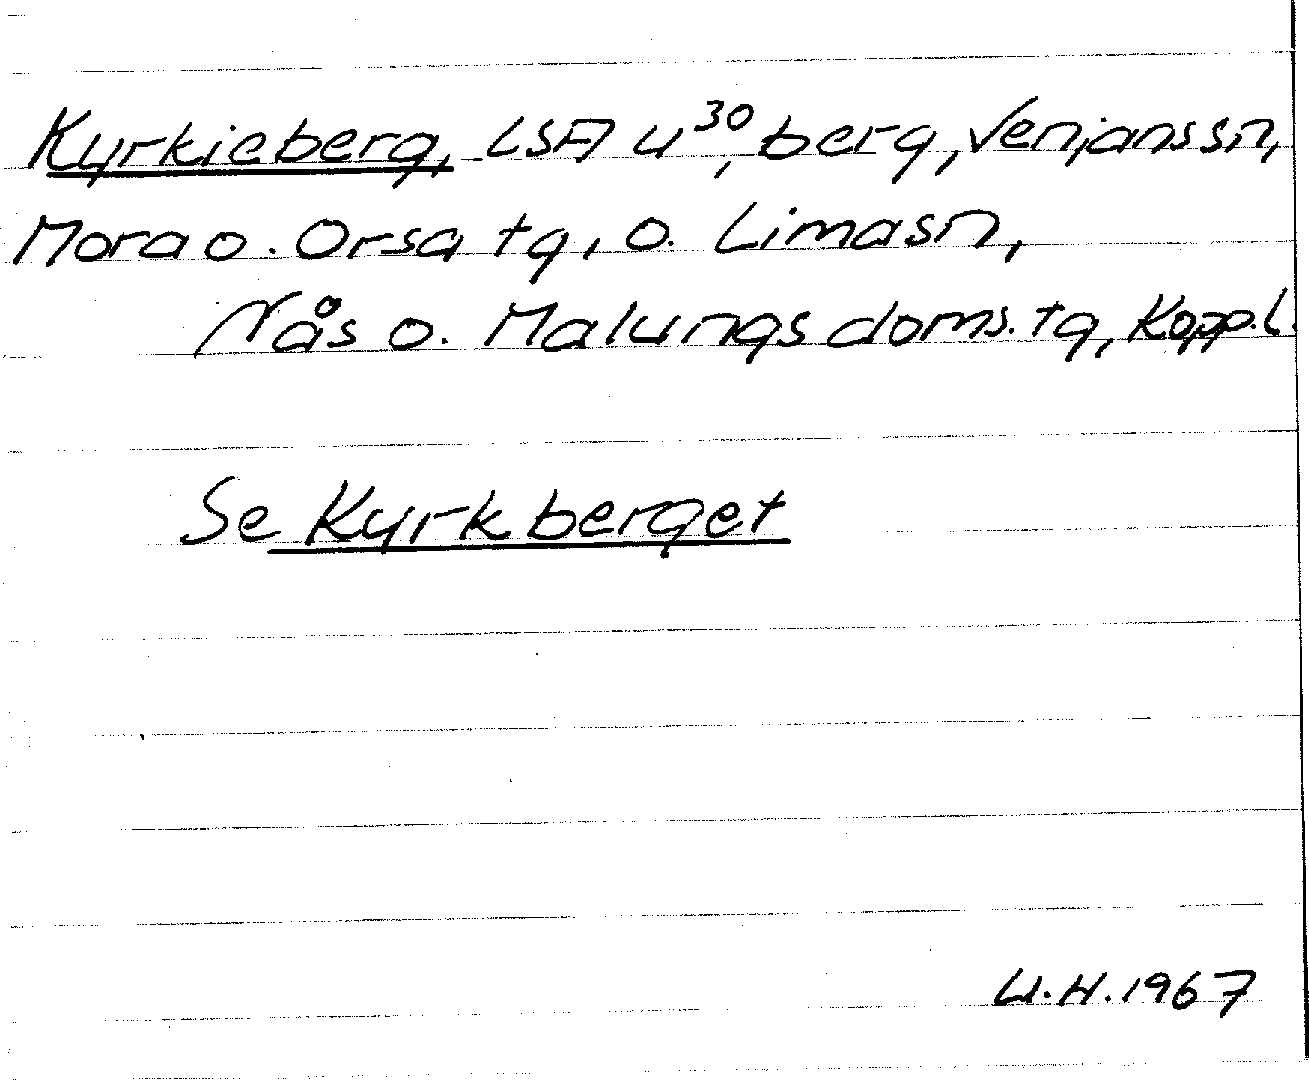 Kyrkieberg, LSA U³⁰, berg, Venjanssn,
Mora o. Orsa tg, o. Limasn,
Nås o. Malungs doms. tg, Kopp.l.
Se Kyrkberget
U.H. 1967